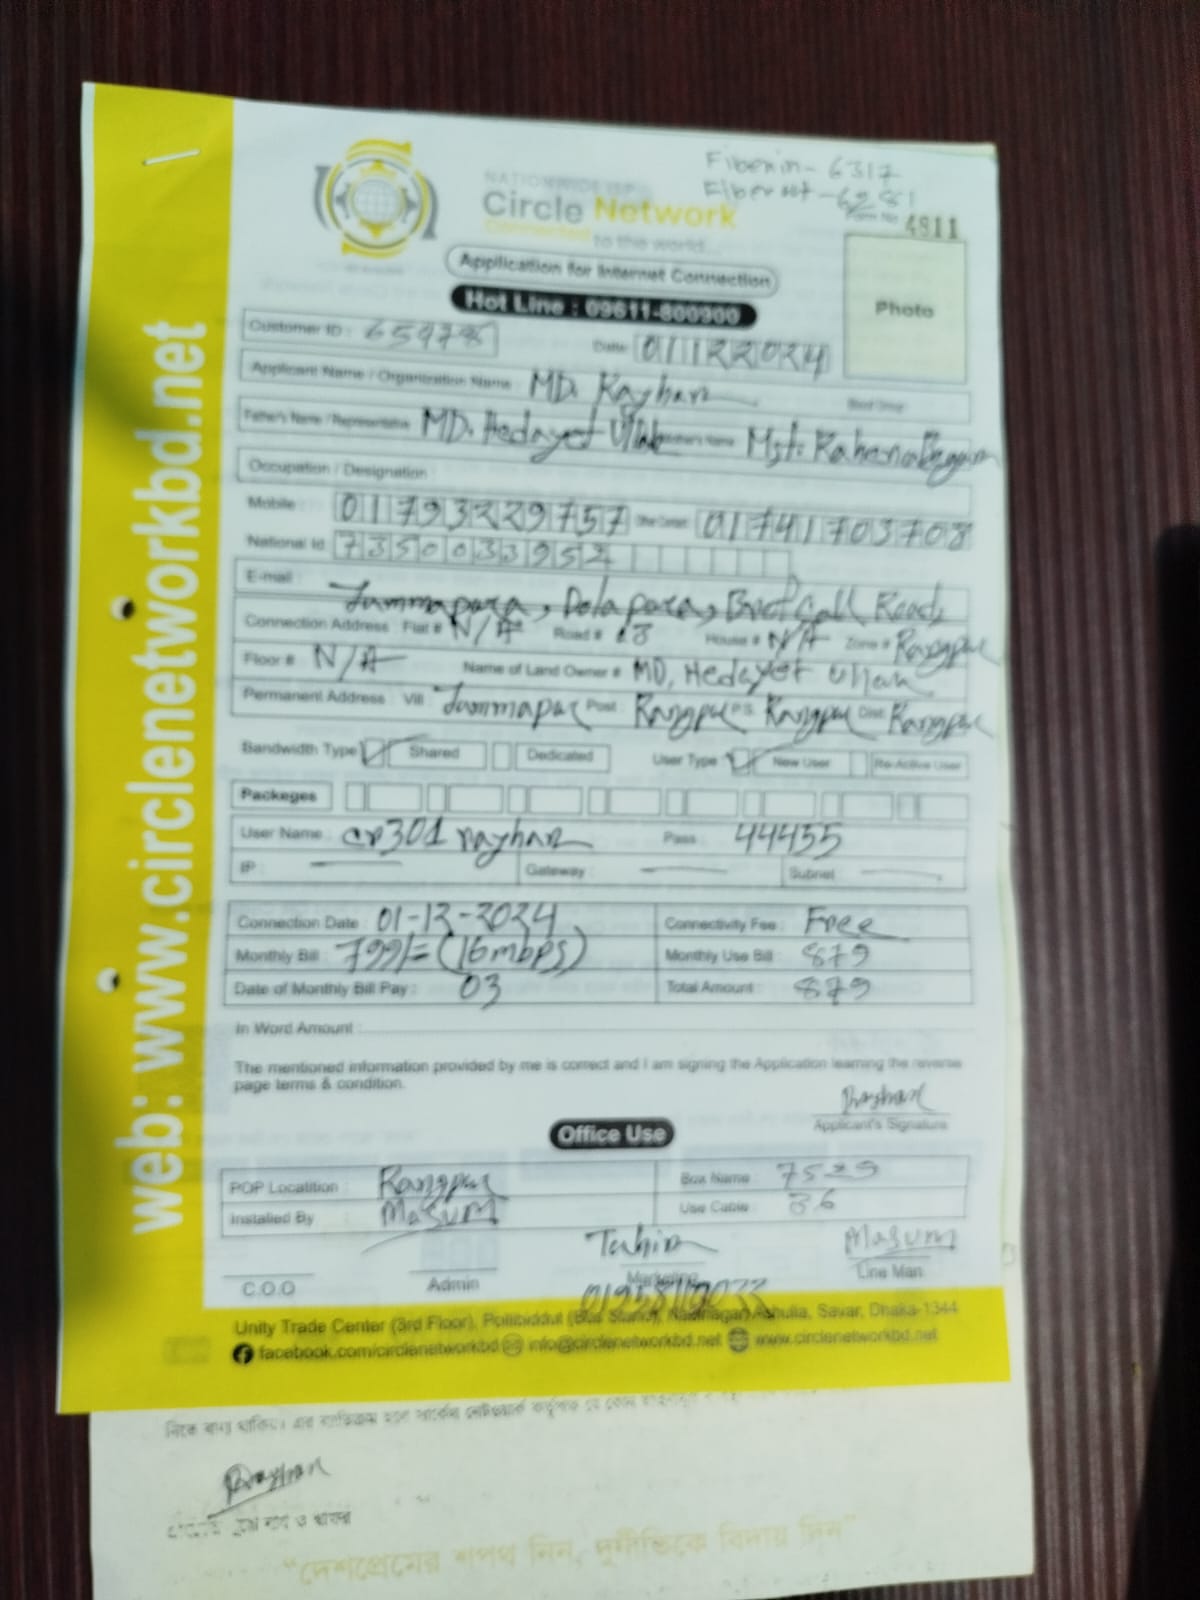 Fiberin - 6317
Fiberout - 6281
NATIONWIDE ISP
Circle Network
Connected to the world...
Form No 4911
Application for Internet Connection
Hot Line : 09611-800900
Photo
Customer ID : 65978
Date: 01122024
Applicant Name / Organization Name : MD. Rayhan
Blood Group :
Father's Name / Representative MD. Hedayet Ullah Mother's Name Mst. Rahena Begum
Occupation / Designation :
Mobile : 01793229757 Other Contact : 01741703708
National Id 7350033952
E-mail :
Jummapara, Dolapara, Road,
Connection Address : Flat # N/A Road # 13 House # N/A Zone # Rangpur
Floor # N/A Name of Land Owner # MD. Hedayet Ullah
Permanent Address : Vill : Jummapur Post : Rangpur P.S : Rangpur Dist : Rangpur
Bandwidth Type Shared Dedicated User Type New User Re-Active User
Packeges
User Name : cr301 rayhan Pass : 44455
IP : Gateway : Subnet :
Connection Date : 01-12-2024 Connectivity Fee : Free
Monthly Bill : 799/= (16mbps) Monthly Use Bill : 879
Date of Monthly Bill Pay : 03 Total Amount : 879
In Word Amount :
The mentioned information provided by me is correct and I am signing the Application learning the reverse
page terms & condition.
Rayhan
Applicant's Signature
Office Use
POP Locatition : Rangpur Box Name : 7529
Installed By : Masum Use Cable : 36
Tuhin Masum
C.O.O Admin Marketing Line Man
Unity Trade Center (3rd Floor), Pollibiddut (Bus Stand), Ashulia, Savar, Dhaka-1344
facebook.com/circlenetworkbd info@circlenetworkbd.net www.circlenetworkbd.net
web: www.circlenetworkbd.net
Rayhan
"দেশপ্রেমের শপথ নিন, দুর্নীতিকে বিদায় দিন"